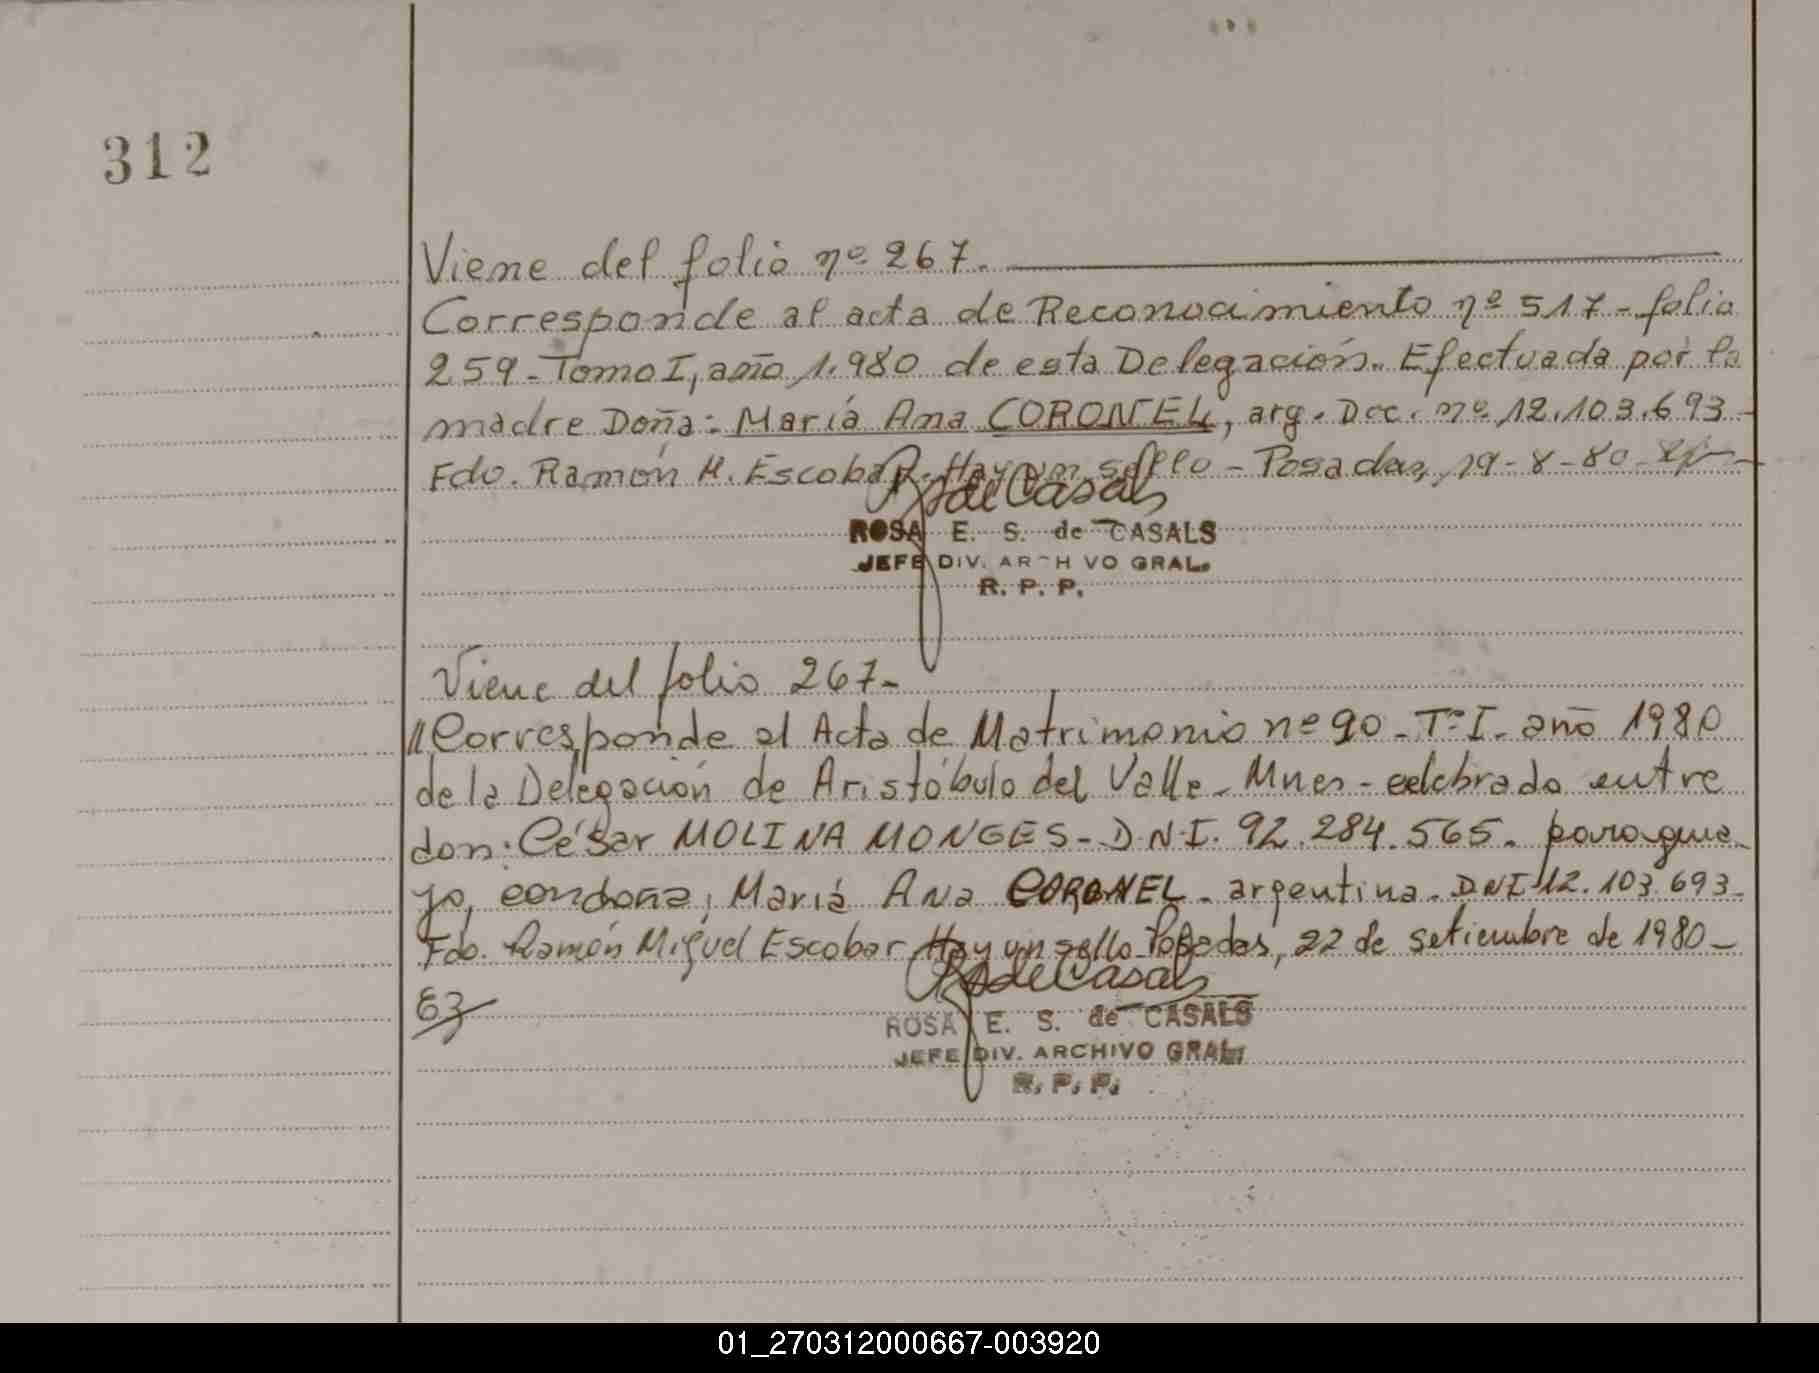 312
Viene del folio nº 267.
Corresponde al acta de Reconocimiento nº 517 - folio
259 - Tomo I, año 1.980 de esta Delegación. Efectuada por la
madre Doña: María Ana CORONEL, arg. Doc. nº 12.103.693 -
Fdo. Ramón M. Escobar. Hay un sello - Posadas, 19-8-80
RS de Casals
ROSA E. S. de CASALS
JEFE DIV. ARCH VO GRAL.
R. P. P.
Viene del folio 267-
"Corresponde al Acta de Matrimonio nº 90 - Tº I - año 1980
de la Delegación de Aristóbulo del Valle - Mnes - celebrado entre
don: César MOLINA MONGES - D.N.I. 92.284.565. paragua-
yo, con doña; María Ana CORONEL - argentina - DNI 12.103.693-
Fdo. Ramón Miguel Escobar Hay un sello Posadas, 22 de setiembre de 1980-
RS de Casals
ROSA E. S. de CASALS
JEFE DIV. ARCHIVO GRAL.
R. P. P.
01_270312000667-003920